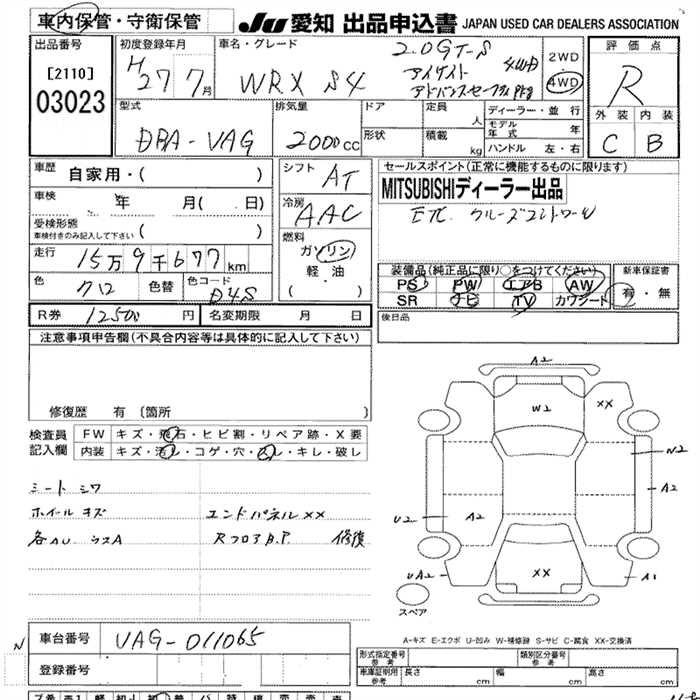 車内保管・守衛保管
JU 愛知 出品申込書 JAPAN USED CAR DEALERS ASSOCIATION
出品番号
[2110]
03023
初度登録年月
H 27 7月
車名・グレード
WRX S4
2.0GT-S 4WD
アイサイト
アドバンスセーフティpkg
2WD
4WD
評価点
R
外装 内装
C B
型式
DBA-VAG
排気量
2000cc
ドア
形状
定員 人
積載 kg
ディーラー・並行
モデル年式 年
ハンドル 左・右
車歴 自家用・( )
車検 年 月( 日)
受検形態
車検付きのみ記入して下さい ( )
走行 15万9千677km
色 クロ 色替 色コード D4S
シフト AT
冷房 AAC
燃料
ガソリン
軽・油
( ・ )
セールスポイント(正常に機能するものに限ります)
MITSUBISHIディーラー出品
ETC. クルーズコントロール
装備品(純正品に限り○をつけてください)
PS PW エアB AW
SR ナビ TV カワシート
新車保証書
有・無
R券 12500円 名変期限 月 日
後日品
注意事項申告欄(不具合内容等は具体的に記入して下さい)
修復歴 有 [箇所 ]
検査員記入欄
FW キズ・飛石・ヒビ割・リペア跡・X要
内装 キズ・汚レ・コゲ・穴・スレ・キレ・破レ
シート シワ
ホイール キズ エンドパネルXX
各AU ウスA Rフロア B.P 修復
A2
W2
XX
W2
A2
U2
A2
XX
UA2
A1
スペア
A-キズ E-エクボ U-凹み W-補修跡 S-サビ C-腐食 XX-交換済
N
車台番号 VAG-011065
登録番号
形式指定番号 参考
類別区分番号 参考
車庫証明用 参考 長さ cm 幅 cm 高さ cm